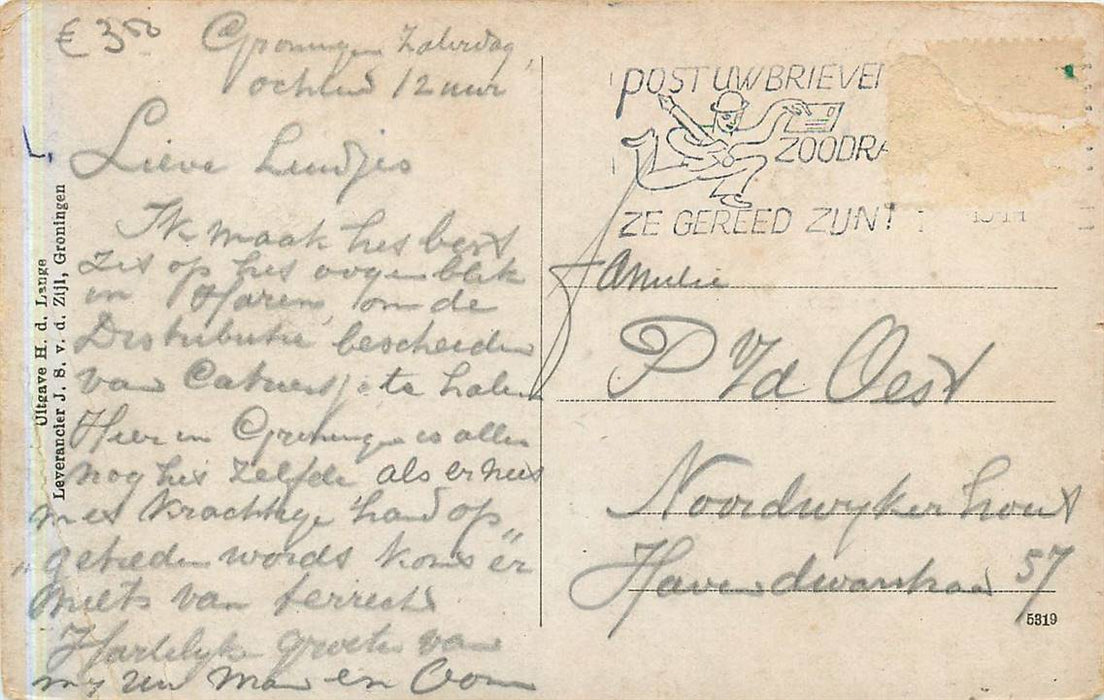 € 3⁵⁰
Groningen Zaterdag
ochtend 12 uur
Lieve Luidjes
Ik maak hes best
zit op hes oogenblik
in Haren, om de
Distributie bescheiden
van te halen
Hier in Groningen is alles
nog hes zelfde als er nies
mes krachtige hand op
getreden words koms er
niets van terrecht
Hartelijke groeten van
my en Oom
Uitgave H. d. Lange
Leverancier J. S. v. d. Zijl, Groningen
POST UW BRIEVEN
ZOODRA
ZE GEREED ZIJN!
Familie
P v/d Oest
Noordwykerhout
57
5319